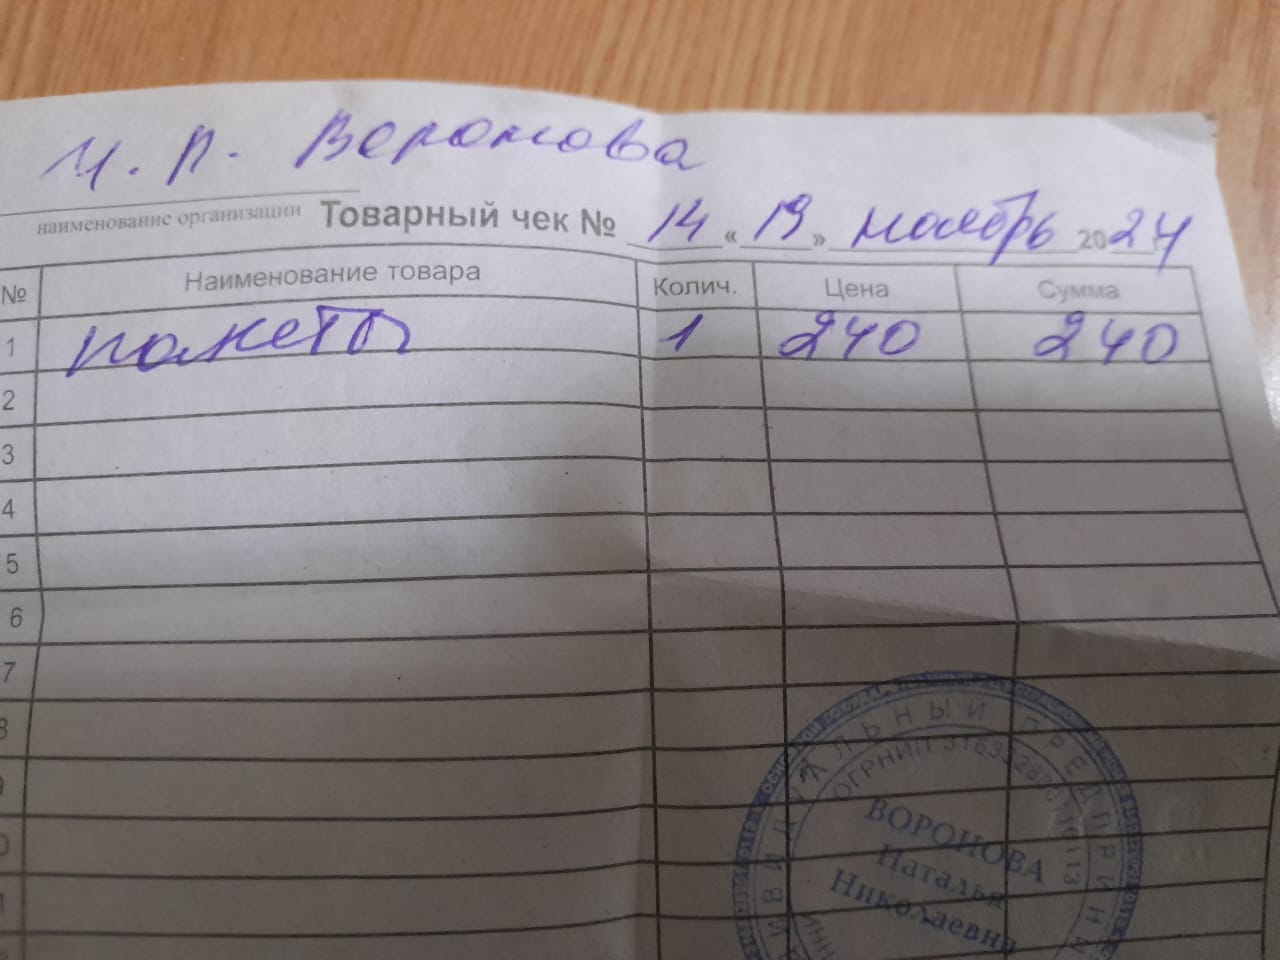 И.П. Воронова
наименование организации Товарный чек № 14 «19» ноябрь 2024
№ Наименование товара Колич. Цена Сумма
1 пакеты 1 240 240
2
3
4
5
6
7
8
ИНДИВИДУАЛЬНЫЙ ПРЕДПРИНИ
ОГРНИП
ВОРОНОВА
Наталья
Николаевна
ИНН